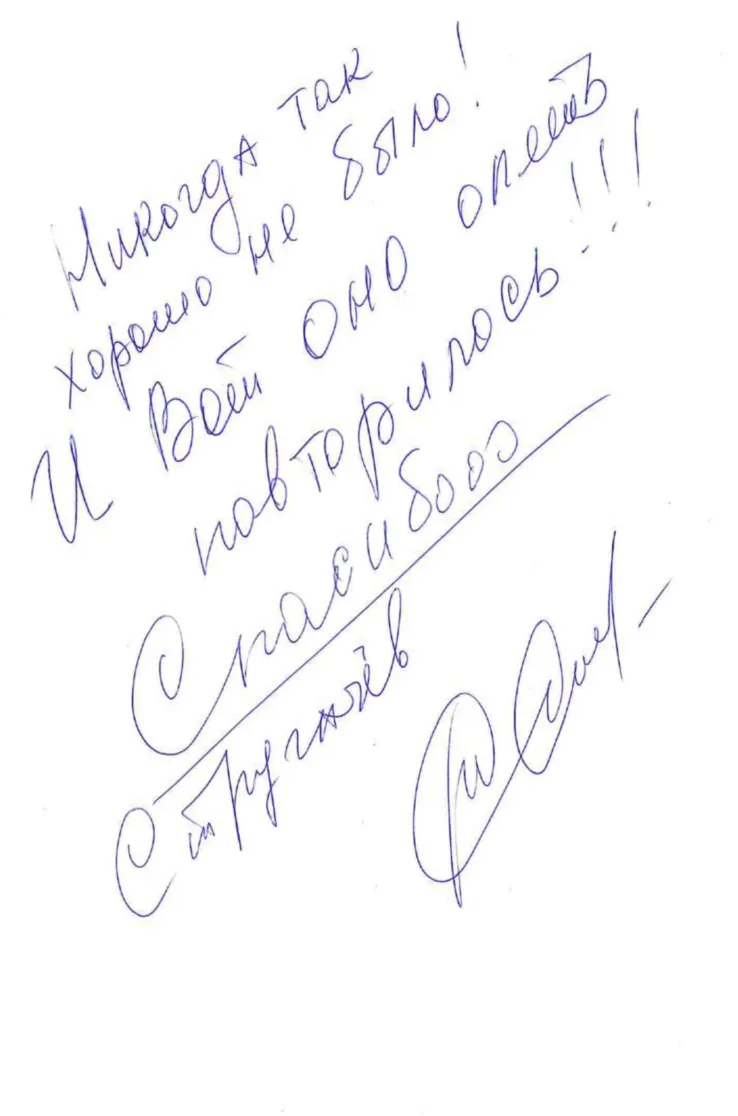 Никогда так
хорошо не было!
И Вот оно опять
повторилось...!!!
Спасибооо
Стругачёв